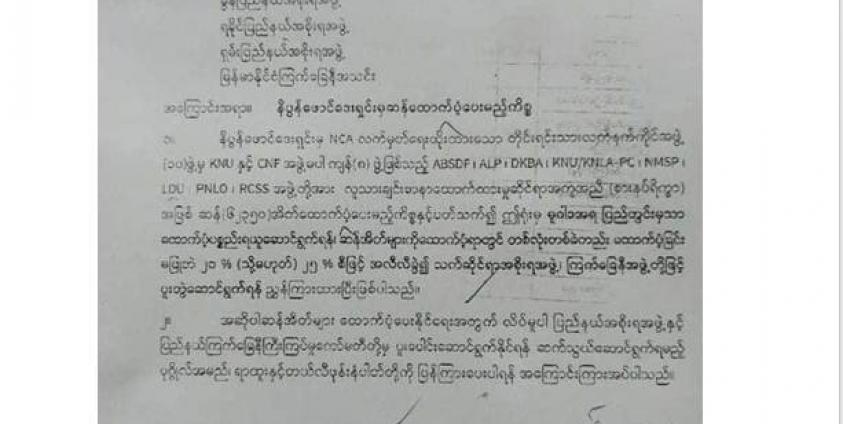 မွန်ပြည်နယ်အစိုးရအဖွဲ့
ရခိုင်ပြည်နယ်အစိုးရအဖွဲ့
ရှမ်းပြည်နယ်အစိုးရအဖွဲ့
မြန်မာနိုင်ငံကြက်ခြေနီအသင်း
အကြောင်းအရာ။ နိပွန်ဖောင်ဒေးရှင်းမှဆန်ထောက်ပံ့ပေးမည့်ကိစ္စ
၁။ နိပွန်ဖောင်ဒေးရှင်းမှ NCA လက်မှတ်ရေးထိုးထားသော တိုင်းရင်းသားလက်နက်ကိုင်အဖွဲ့
(၁၀)ဖွဲ့မှ KNU နှင့် CNF အဖွဲ့မပါ ကျန်(၈) ဖွဲ့ဖြစ်သည့် ABSDF ၊ ALP ၊ DKBA ၊ KNU/KNLA-PC ၊ NMSP ၊
LDU ၊ PNLO ၊ RCSS အဖွဲ့တို့အား လူသားချင်းစာနာထောက်ထားမှုဆိုင်ရာအကူအညီ (စားနပ်ရိက္ခာ)
အဖြစ် ဆန်(၆,၃၅၀)အိတ်ထောက်ပံ့ပေးမည့်ကိစ္စနှင့်ပတ်သက်၍ ဤရုံးမှ မူဝါဒအရ ပြည်တွင်းမှသာ
ထောက်ပံ့ပစ္စည်းရယူဆောင်ရွက်ရန်၊ ဆန်အိတ်များကိုထောက်ပံ့ရာတွင် တစ်လုံးတစ်ခဲတည်း မထောက်ပံ့ခြင်း
မပြုဘဲ ၂၀ % (သို့မဟုတ်) ၂၅ % စီဖြင့် အလီလီခွဲ၍ သက်ဆိုင်ရာအစိုးရအဖွဲ့၊ ကြက်ခြေနီအဖွဲ့တို့ဖြင့်
ပူးတွဲဆောင်ရွက်ရန် ညွှန်ကြားထားပြီးဖြစ်ပါသည်။
၂။ အဆိုပါဆန်အိတ်များ ထောက်ပံ့ပေးနိုင်ရေးအတွက် လိပ်မူပါ ပြည်နယ်အစိုးရအဖွဲ့နှင့်
ပြည်နယ်ကြက်ခြေနီကြီးကြပ်မှုကော်မတီတို့မှ ပူးပေါင်းဆောင်ရွက်နိုင်ရန် ဆက်သွယ်ဆောင်ရွက်ရမည့်
ပုဂ္ဂိုလ်အမည်၊ ရာထူးနှင့်တယ်လီဖုန်းနံပါတ်တို့ကို ပြန်ကြားပေးပါရန် အကြောင်းကြားအပ်ပါသည်။